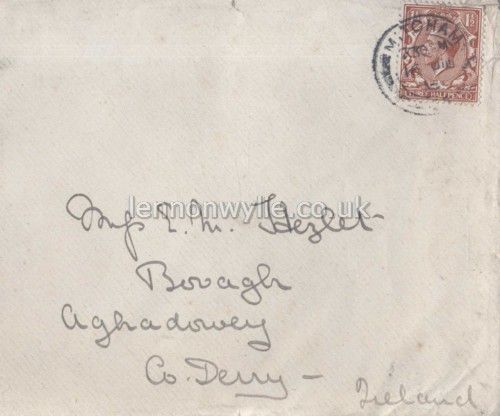 MITCHAM
THREE HALFPENCE
lennonwylie.co.uk
Miss E. M. Hezlet
Bovagh
Aghadowey
Co. Derry —
Ireland